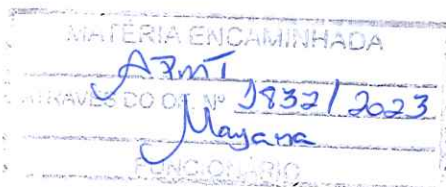 MATÉRIA ENCAMINHADA
ATRAVÉS DO OF. Nº 1832/2023
Mayana
FUNCIONÁRIO